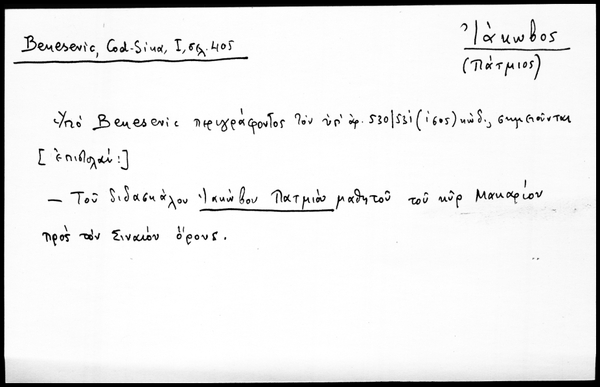 Benesevic, Cod. Sina, I, σελ. 405
Ἰάκωβος
(Πάτμιος)
Ὑπὸ Benesevic περιγράφοντος τὸν ὑπ' ἀρ. 530/531 (ἰσος) κώδ., σημειοῦνται
[ἐπιστολαί:]
— Τοῦ διδασκάλου Ἰακώβου Πατμίου μαθητοῦ τοῦ κῦρ Μακαρίου
πρὸς τὸν Σιναίου ὄρους.